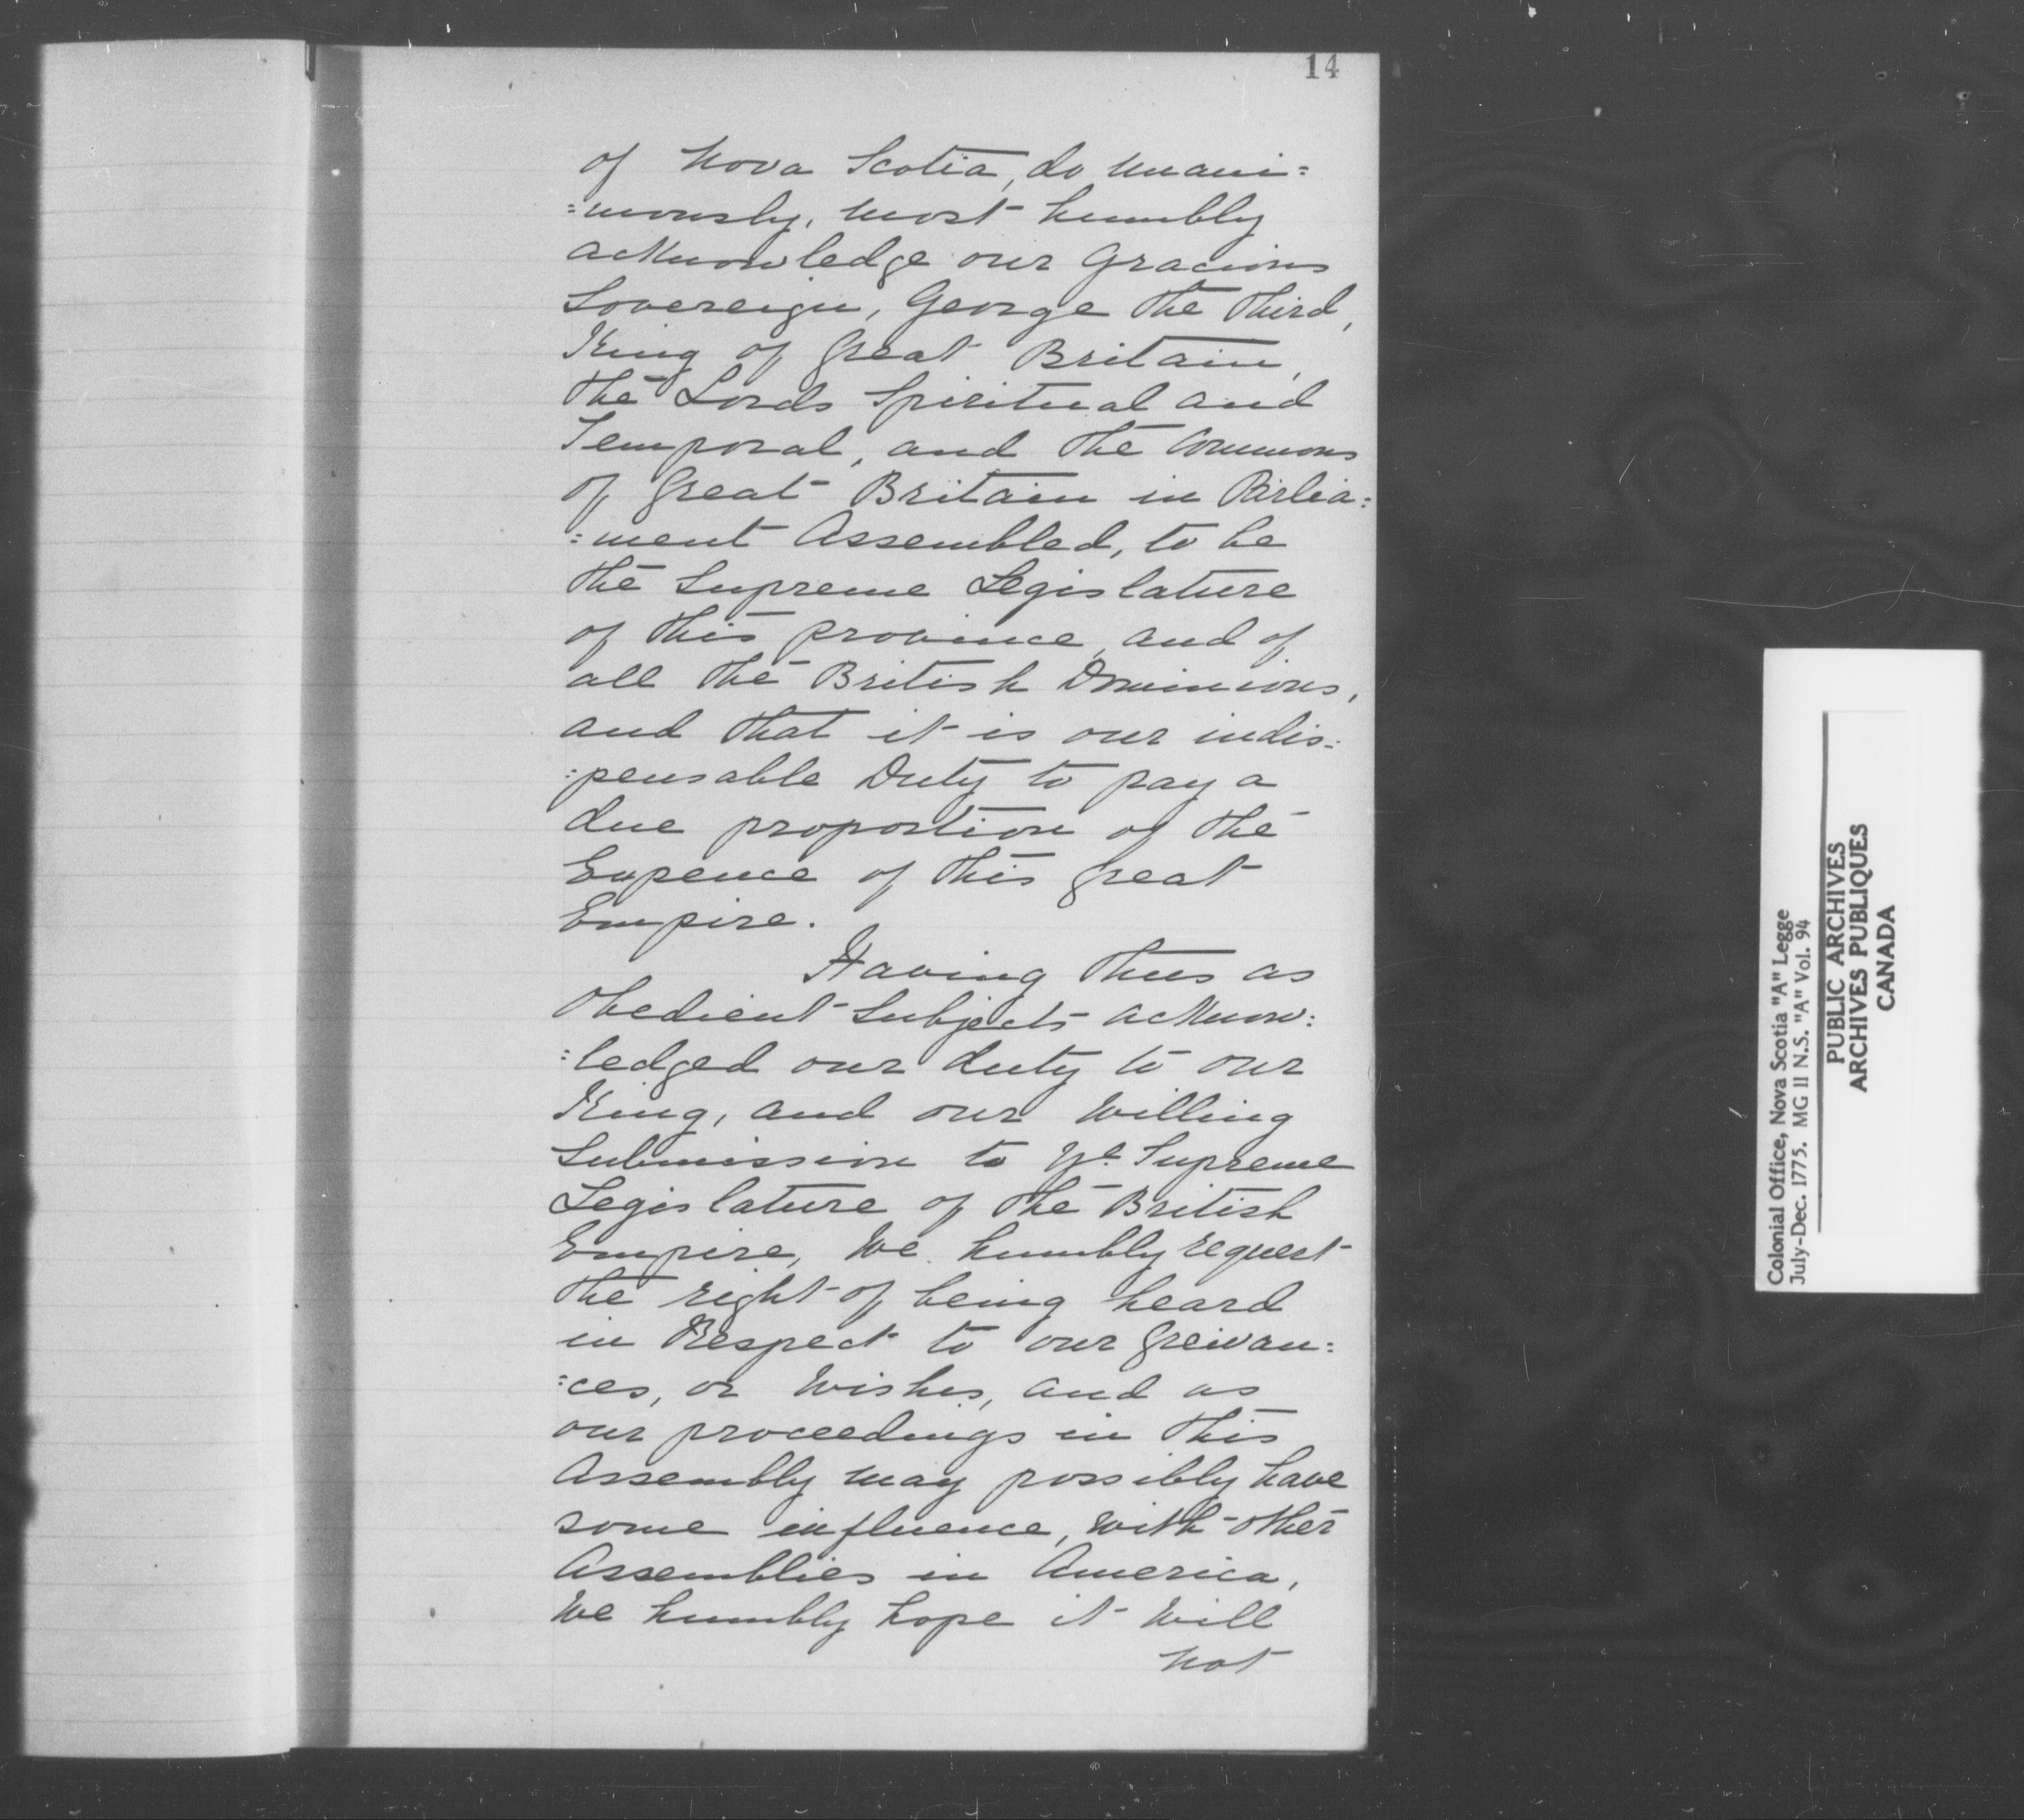 14
of Nova Scotia, do unani=
=mously, most humbly
acknowledge our Gracious
Sovereign, George the Third,
King of Great Britain,
the Lords Spiritual and
Temporal, and the Commons
of Great Britain in Parlia=
=ment Assembled, to be
the Supreme Legislature
of this province, and of
all the British Dominions,
and that it is our indis=
=pensable Duty to pay a
due proportion of the
Expence of this great
Empire.
Having thus as
Obedient Subjects acknow=
=ledged our duty to our
King, and our Willing
Submission to ye Supreme
Legislature of the British
Empire, We humbly request
the right of being heard
in Respect to our greivan=
=ces, or Wishes, and as
our proceedings in this
Assembly may possibly have
some influence, with other
Assemblies in America,
We humbly hope it Will
not
Colonial Office, Nova Scotia "A" Legge
July-Dec. 1775. MG 11 N.S. "A" Vol. 94
PUBLIC ARCHIVES
ARCHIVES PUBLIQUES
CANADA